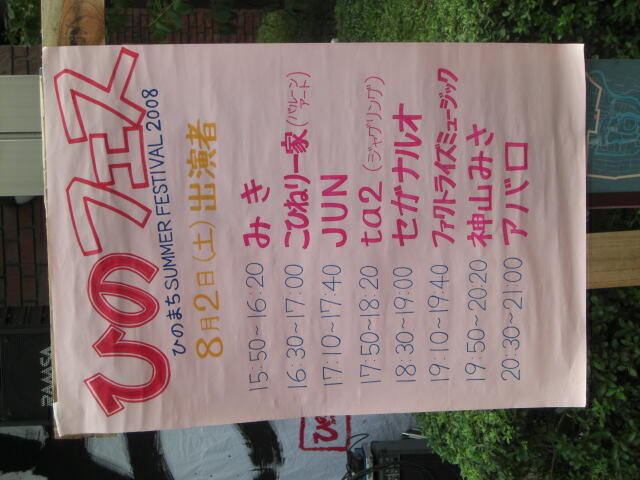 ひのフェス
ひのまちSUMMER FESTIVAL 2008
8月2日(土)出演者
15:50~16:20 みき
16:30~17:00 こひねり一家(バルーンアート)
17:10~17:40 JUN
17:50~18:20 ta2(ジャグリング)
18:30~19:00 セガナルオ
19:10~19:40 ファクトライズミュージック
19:50~20:20 神山みさ
20:30~21:00 アバロ
RAMSA